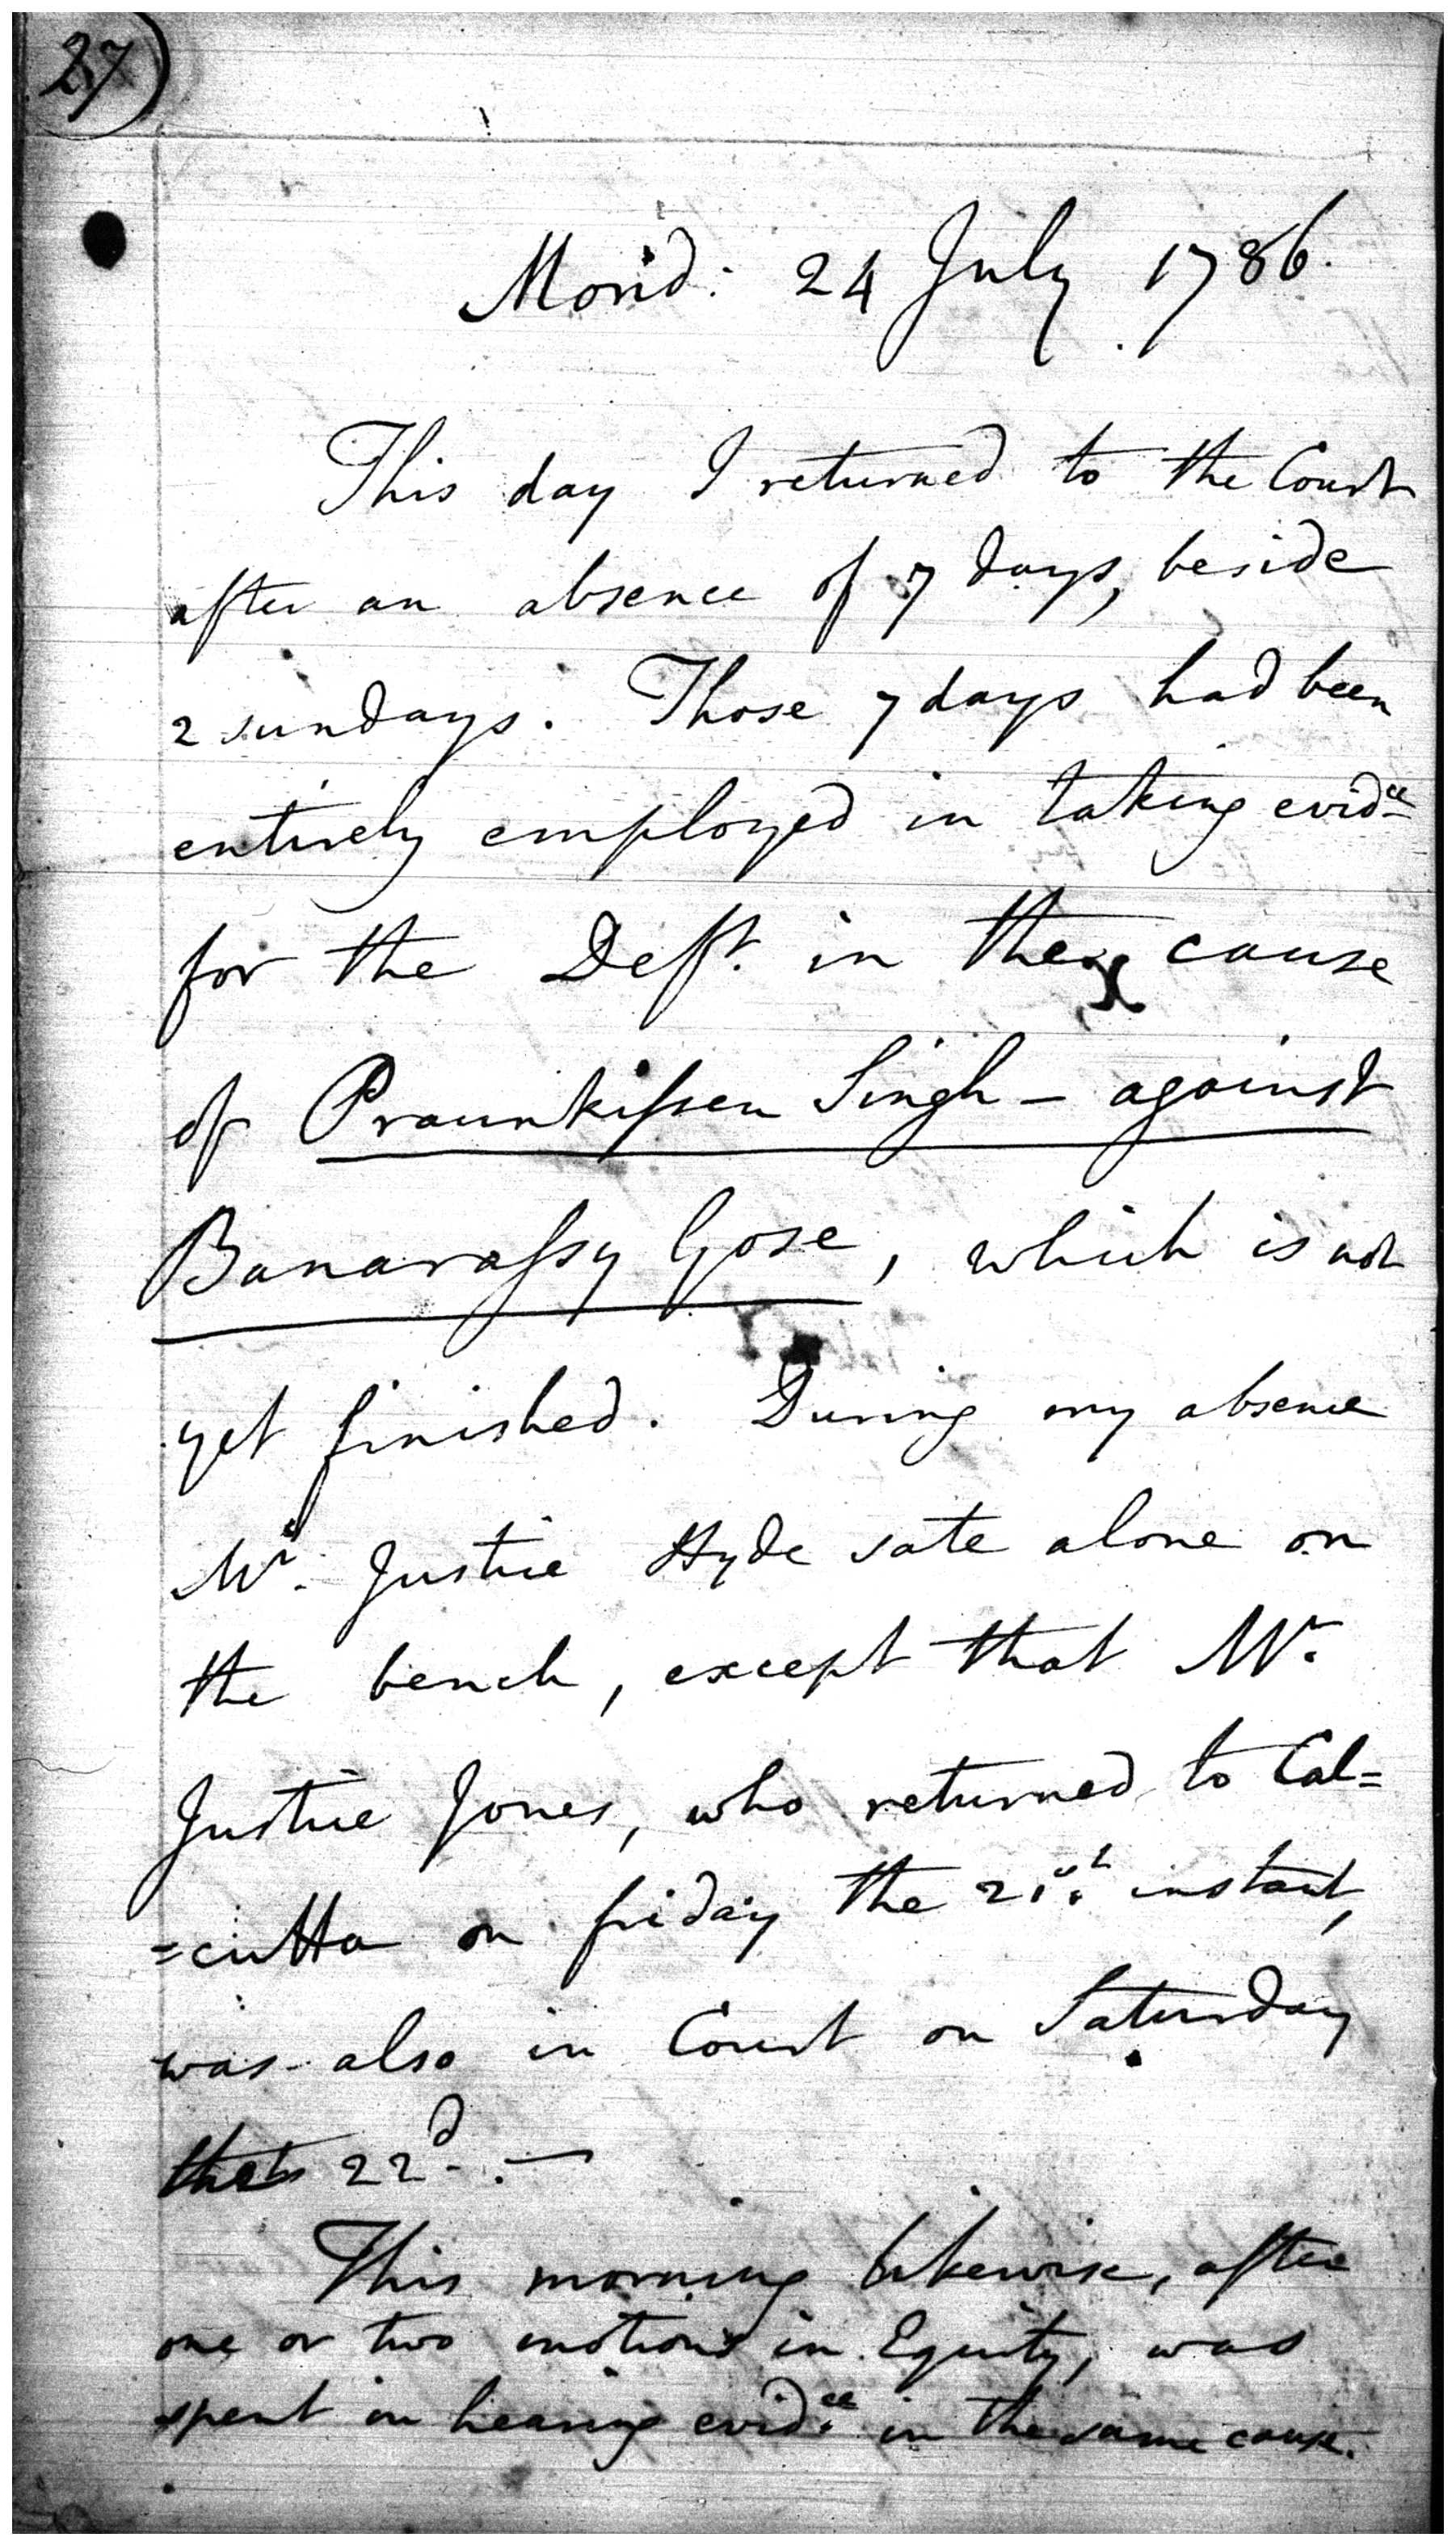 27
Mond: 24 July 1786.
This day I returned to the Court
after an absence of 7 days, beside
2 sundays. Those 7 days had been
entirely employed in taking evid.ce
for the Deft. in the cause
of Praunkiſsen Singh - against
Banaraſsy Gose, which is not
yet finished. During my absence
Mr. Justice Hyde sate alone on
the bench, except that Mr.
Justice Jones, who returned to Cal=
=cutta on friday the 21st. instant,
was also in Court on Saturday
the 22d. —
This morning likewise, after
one or two motions in Equity, was
spent in hearing evid.ce in the same cause.